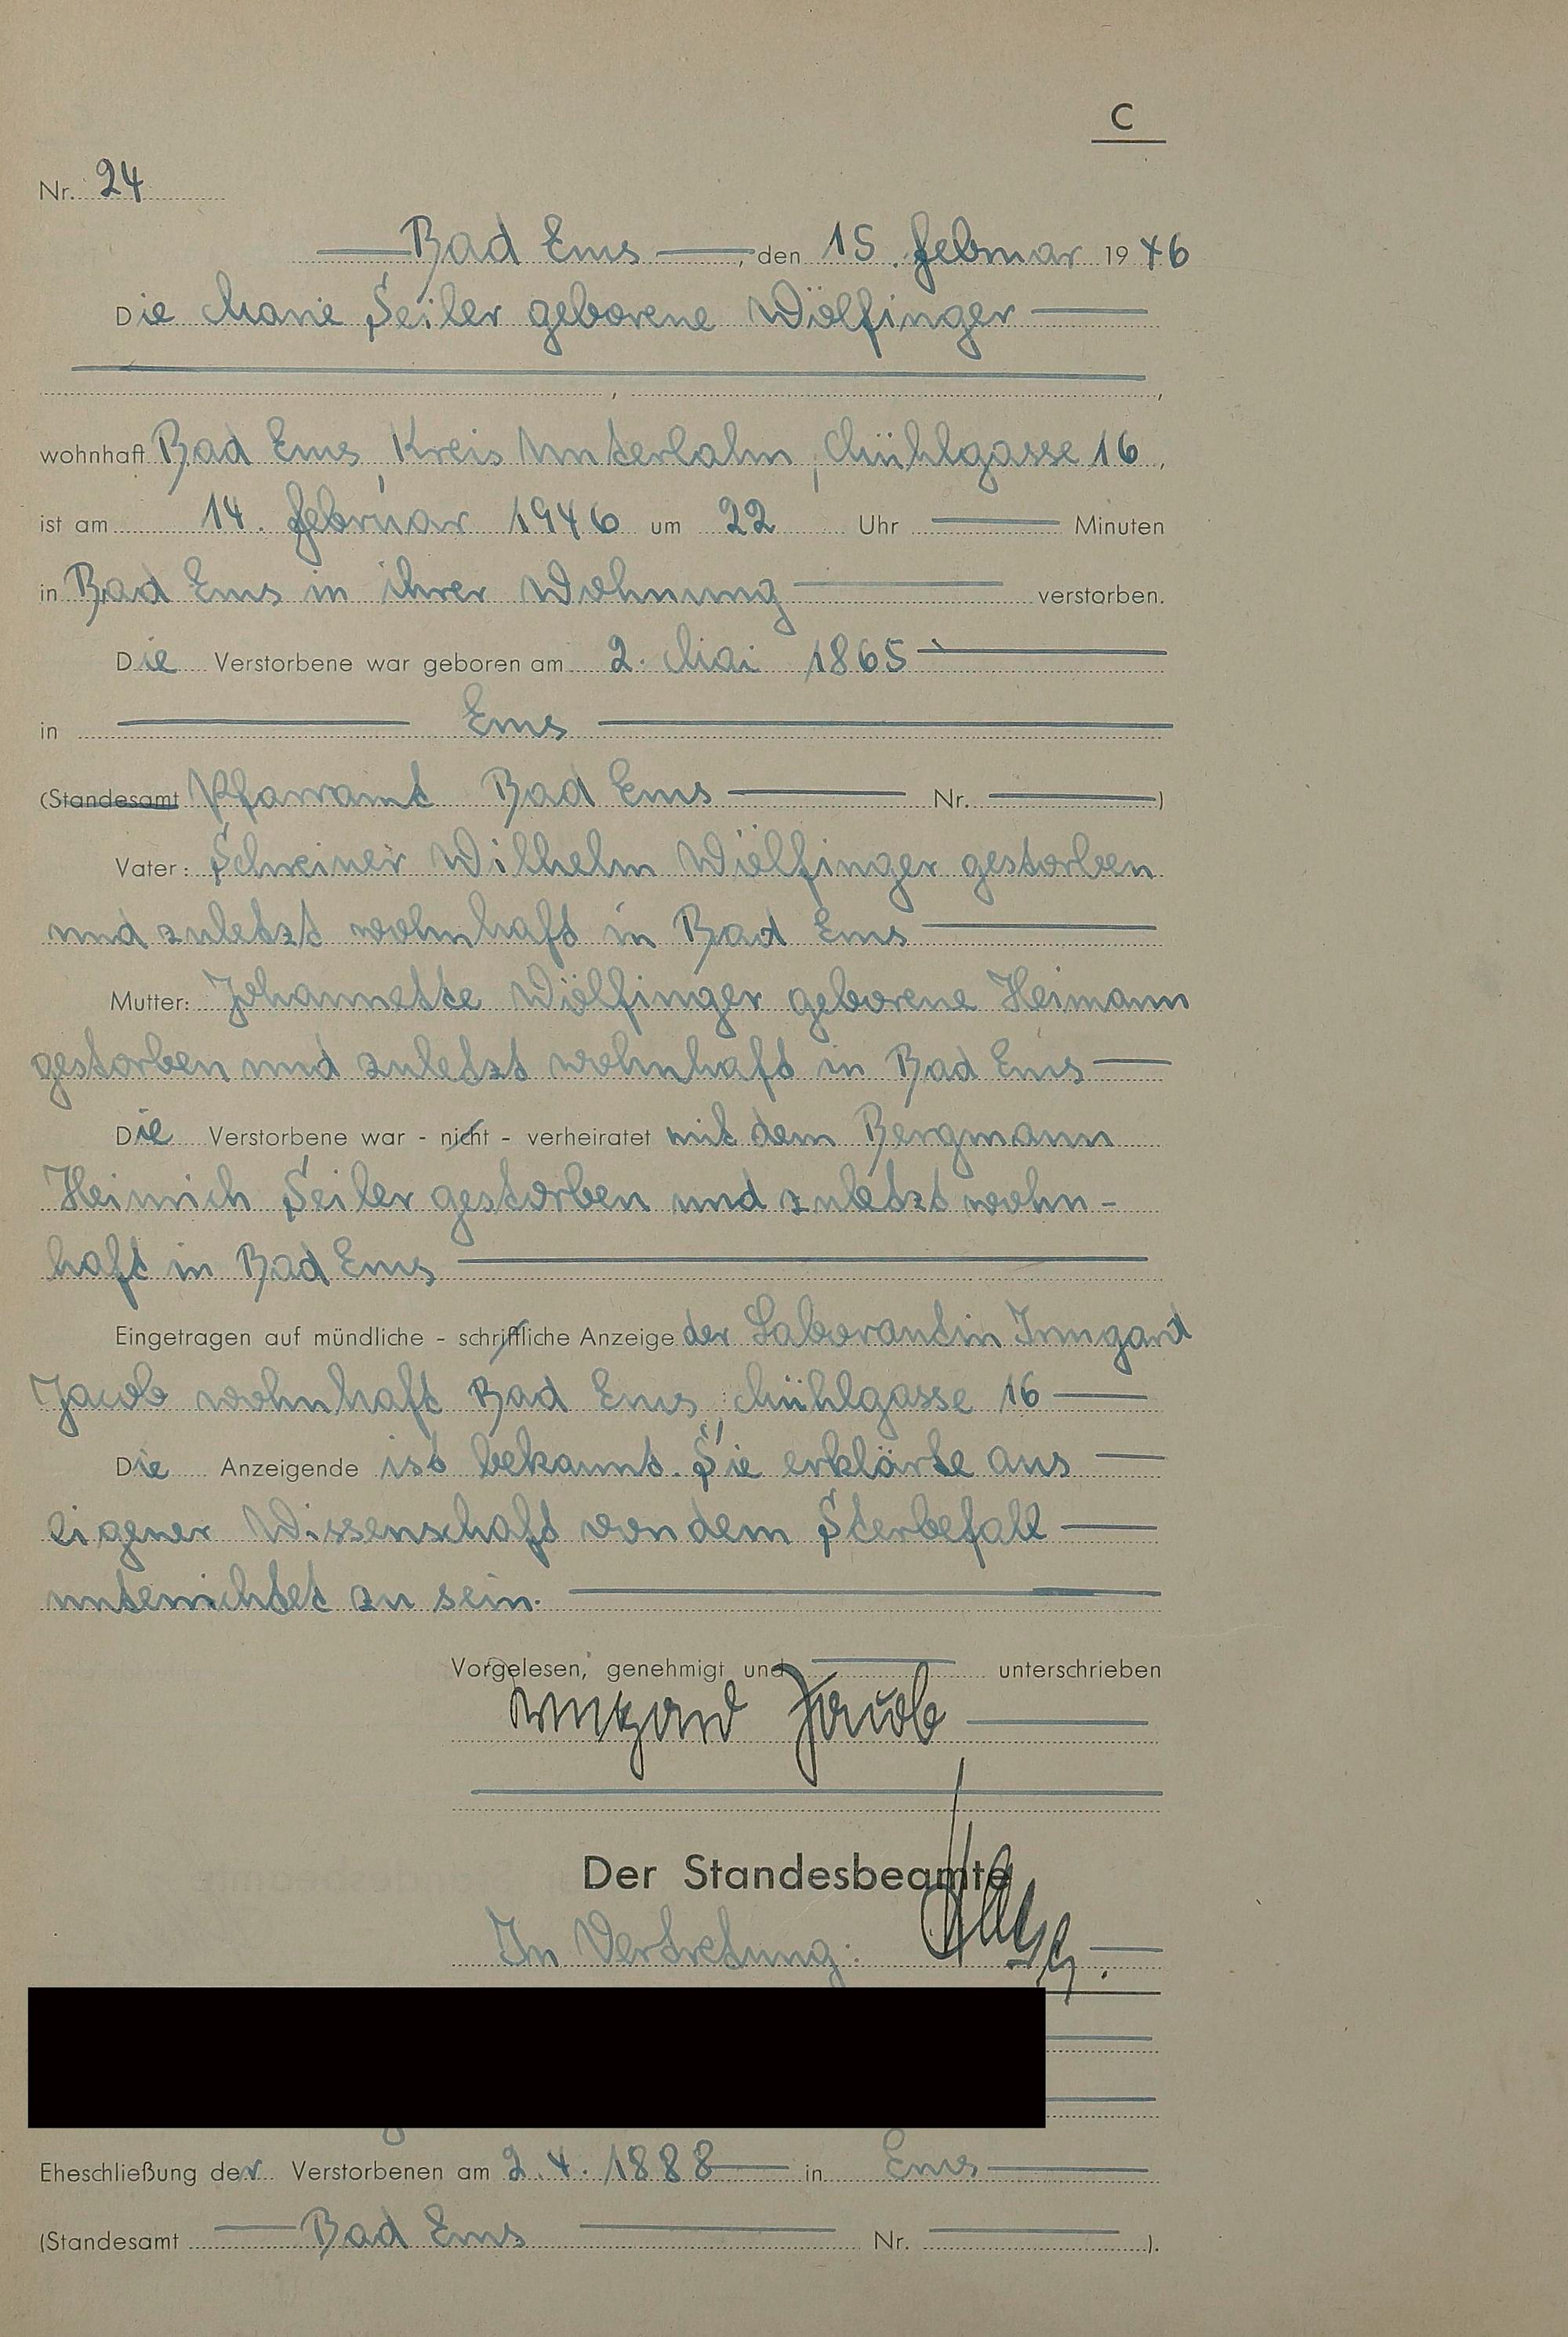 C
Nr. 24
Bad Ems, den 15. Februar 1946
Die Marie Seiler geborene Wölfinger
, ,
wohnhaft Bad Ems, Kreis Unterlahn, Mühlgasse 16,
ist am 14. Februar 1946 um 22 Uhr Minuten
in Bad Ems in ihrer Wohnung verstorben.
Die Verstorbene war geboren am 2. Mai 1865
in Ems
(Standesamt Pfarramt Bad Ems Nr. )
Vater: Schreiner Wilhelm Wölfinger gestorben
und zuletzt wohnhaft in Bad Ems
Mutter: Johannette Wölfinger geborene Heimann
gestorben und zuletzt wohnhaft in Bad Ems
Die Verstorbene war - nicht - verheiratet mit dem Bergmann
Heinrich Seiler gestorben und zuletzt wohn-
haft in Bad Ems
Eingetragen auf mündliche - schriftliche Anzeige der Laborantin Irmgard
Jacob wohnhaft Bad Ems, Mühlgasse 16
Die Anzeigende ist bekannt. Sie erklärte aus
eigener Wissenschaft von dem Sterbefall
unterrichtet zu sein.
Vorgelesen, genehmigt und unterschrieben
Irmgard Jacob
Der Standesbeamte
In Vertretung:
Eheschließung der Verstorbenen am 2.4.1888 in Ems
(Standesamt Bad Ems Nr. ).